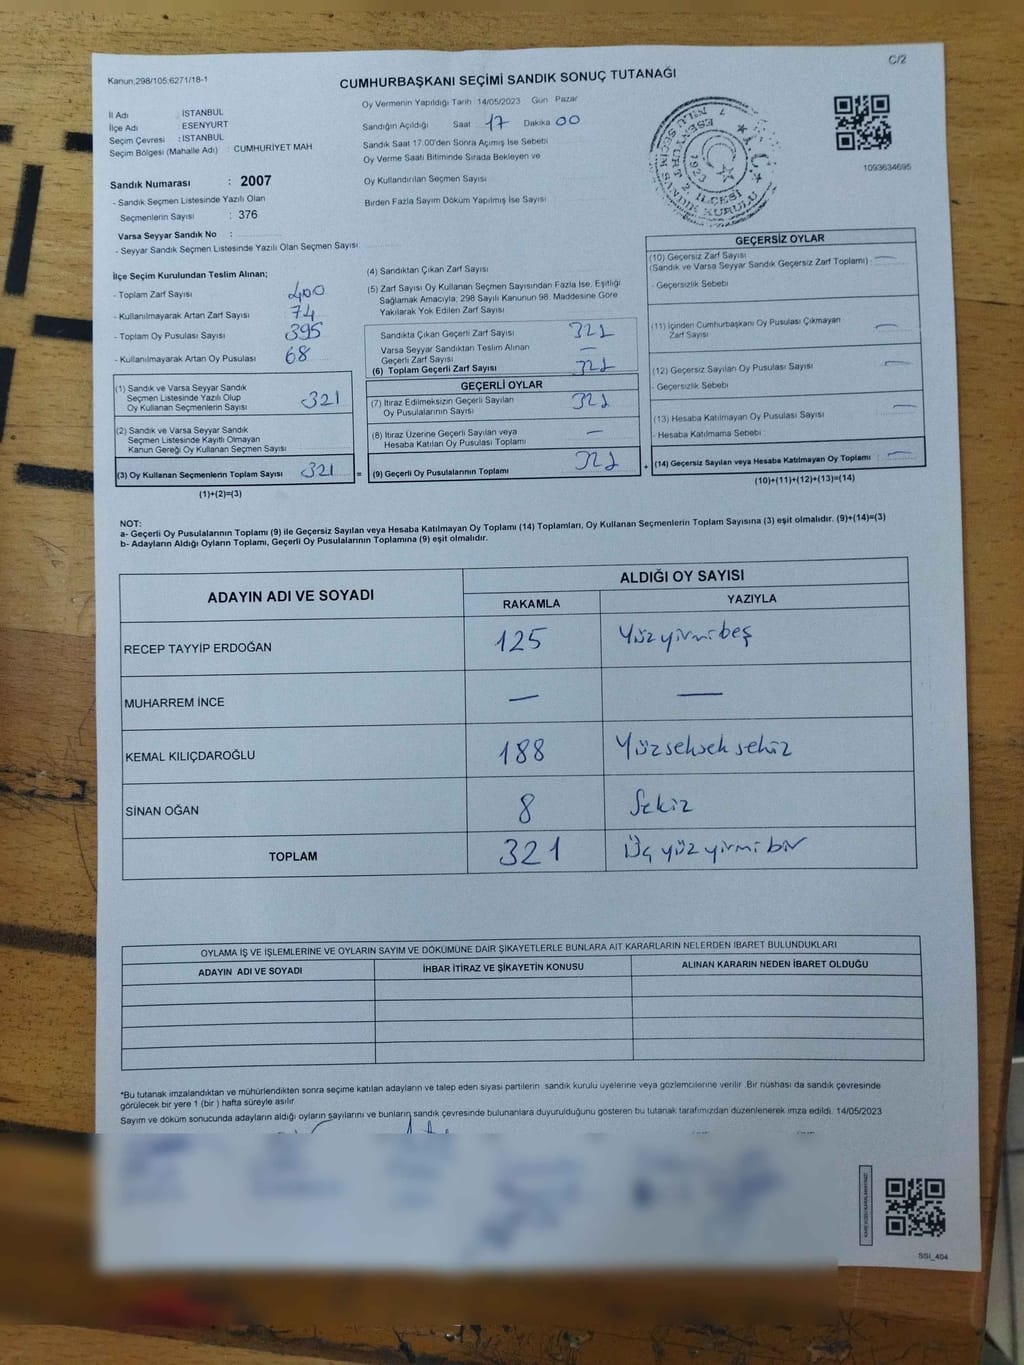 Kanun.298/105.6271/18-1
C/2
CUMHURBAŞKANI SEÇİMİ SANDIK SONUÇ TUTANAĞI
İl Adı : İSTANBUL
İlçe Adı : ESENYURT
Seçim Çevresi : İSTANBUL
Seçim Bölgesi (Mahalle Adı) : CUMHURİYET MAH
Sandık Numarası : 2007
- Sandık Seçmen Listesinde Yazılı Olan
Seçmenlerin Sayısı : 376
Varsa Seyyar Sandık No :
- Seyyar Sandık Seçmen Listesinde Yazılı Olan Seçmen Sayısı:
Oy Vermenin Yapıldığı Tarih 14/05/2023 Gün Pazar
Sandığın Açıldığı Saat 17 Dakika 00
Sandık Saat 17.00'den Sonra Açımış İse Sebebi
Oy Verme Saati Bitiminde Sırada Bekleyen ve
Oy Kullandırılan Seçmen Sayısı
Birden Fazla Sayım Döküm Yapılmış İse Sayısı
T.C.
ESENYURT 2. İLÇESİ
1923
1093634695
İlçe Seçim Kurulundan Teslim Alınan;
- Toplam Zarf Sayısı 400
- Kullanılmayarak Artan Zarf Sayısı 74
- Toplam Oy Pusulası Sayısı 395
- Kullanılmayarak Artan Oy Pusulası 68
(1) Sandık ve Varsa Seyyar Sandık
Seçmen Listesinde Yazılı Olup
Oy Kullanan Seçmenlerin Sayısı 321
(2) Sandık ve Varsa Seyyar Sandık
Seçmen Listesinde Kayıtlı Olmayan
Kanun Gereği Oy Kullanan Seçmen Sayısı
(3) Oy Kullanan Seçmenlerin Toplam Sayısı 321 =
(1)+(2)=(3)
(4) Sandıktan Çıkan Zarf Sayısı
(5) Zarf Sayısı Oy Kullanan Seçmen Sayısından Fazla İse, Eşitliği
Sağlamak Amacıyla; 298 Sayılı Kanunun 98. Maddesine Göre
Yakılarak Yok Edilen Zarf Sayısı
Sandıkta Çıkan Geçerli Zarf Sayısı 321
Varsa Seyyar Sandıktan Teslim Alınan
Geçerli Zarf Sayısı —
(6) Toplam Geçerli Zarf Sayısı 321
GEÇERLİ OYLAR
(7) İtiraz Edilmeksizin Geçerli Sayılan
Oy Pusulalarının Sayısı 321
(8) İtiraz Üzerine Geçerli Sayılan veya
Hesaba Katılan Oy Pusulası Toplamı —
(9) Geçerli Oy Pusulalarının Toplamı 321 +
GEÇERSİZ OYLAR
(10) Geçersiz Zarf Sayısı
(Sandık ve Varsa Seyyar Sandık Geçersiz Zarf Toplamı) : —
- Geçersizlik Sebebi
(11) İçinden Cumhurbaşkanı Oy Pusulası Çıkmayan
Zarf Sayısı —
(12) Geçersiz Sayılan Oy Pusulası Sayısı —
- Geçersizlik Sebebi
(13) Hesaba Katılmayan Oy Pusulası Sayısı —
- Hesaba Katılmama Sebebi
(14) Geçersiz Sayılan veya Hesaba Katılmayan Oy Toplamı : —
(10)+(11)+(12)+(13)=(14)
NOT:
a- Geçerli Oy Pusulalarının Toplamı (9) ile Geçersiz Sayılan veya Hesaba Katılmayan Oy Toplamı (14) Toplamları, Oy Kullanan Seçmenlerin Toplam Sayısına (3) eşit olmalıdır. (9)+(14)=(3)
b- Adayların Aldığı Oyların Toplamı, Geçerli Oy Pusulalarının Toplamına (9) eşit olmalıdır.
ADAYIN ADI VE SOYADI
ALDIĞI OY SAYISI
RAKAMLA YAZIYLA
RECEP TAYYİP ERDOĞAN 125 Yüzyirmibeş
MUHARREM İNCE — —
KEMAL KILIÇDAROĞLU 188 Yüzseksek sekiz
SİNAN OĞAN 8 Sekiz
TOPLAM 321 Üç yüz yirmi bir
OYLAMA İŞ VE İŞLEMLERİNE VE OYLARIN SAYIM VE DÖKÜMÜNE DAİR ŞİKAYETLERLE BUNLARA AİT KARARLARIN NELERDEN İBARET BULUNDUKLARI
ADAYIN ADI VE SOYADI İHBAR İTİRAZ VE ŞİKAYETİN KONUSU ALINAN KARARIN NEDEN İBARET OLDUĞU
*Bu tutanak imzalandıktan ve mühürlendikten sonra seçime katılan adayların ve talep eden siyasi partilerin sandık kurulu üyelerine veya gözlemcilerine verilir. Bir nüshası da sandık çevresinde
görülecek bir yere 1 (bir) hafta süreyle asılır.
Sayım ve döküm sonucunda adayların aldığı oyların sayılarını ve bunların sandık çevresinde bulunanlara duyurulduğunu gösteren bu tutanak tarafımızdan düzenlenerek imza edildi. 14/05/2023
SSI_404